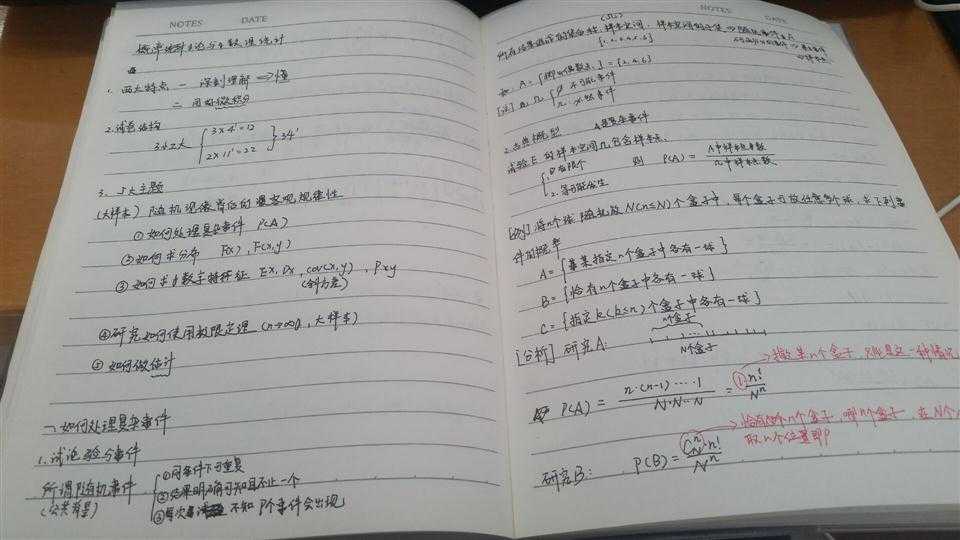 NOTES DATE
概率论与数理统计
1. 两大特点 一 深刻理解 ⇒ 懂
二 用好微积分
2. 试卷结构
3小2大 { 3×4'=12
2×11'=22 } 34'
3. 5大主题
(大样本) 随机现象背后的客观规律性
① 如何处理复杂事件 P(A)
② 如何求分布 F(x), F(x,y)
③ 如何求数字特征 EX, DX, cov(X,Y), ρxy
(协方差)
④ 研究如何使用极限定理 (n→∞, 大样本)
⑤ 如何做估计
一、如何处理复杂事件
1. 试验与事件
所谓随机事件
(公共背景)
① 同条件下可重复
② 结果明确可知且不止一个
③ 每次 不知 个事件会出现
NOTES DATE
(Ω)
样本空间, 样本空间的子集 ⇒ 随机事件A
{1,2,3,4,5,6}
如: A = {偶数点} = {2,4,6}
[注] Ω { ∅ 不可能事件
Ω 必然事件
2. 古典概型 A是复杂事件
试验E的样本空间Ω包含样本点
1. 有限个
2. 等可能发生
则 P(A) = A中样本点数 / Ω中样本点数
[例] 将n个球随机放N(n≤N)个盒子中, 每个盒子可放任意多个球, 求下列事
件的概率
A = {某指定n个盒子中各有一球}
B = {恰有n个盒子中各有一球}
C = {指定k(k≤n)个盒子中各有一球}
n个盒子
[分析] 研究A:
N个盒子
P(A) = n·(n-1)·····1 / N·N···N = 1·n! / Nⁿ
→ 指定某n个盒子, 只是一种情况
研究B: P(B) = Cₙⁿ·n! / Nⁿ
→ 恰有n个盒子, 哪n个盒子, 在N个
取n个位置即可